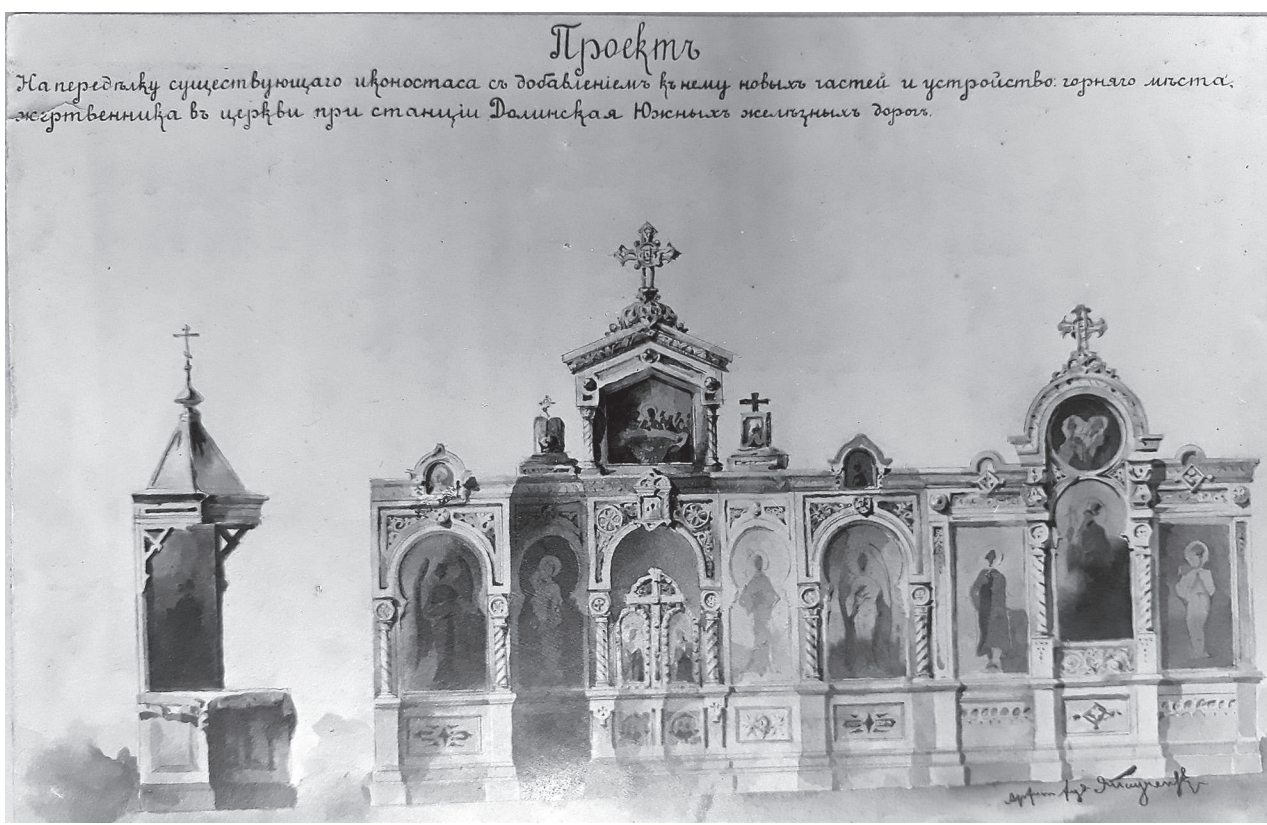 Проектъ
На передѣлку существующаго иконостаса съ добавленіемъ къ нему новыхъ частей и устройство: горняго мѣста,
жертвенника въ церкви при станціи Долинская Южныхъ желѣзныхъ дорогъ.